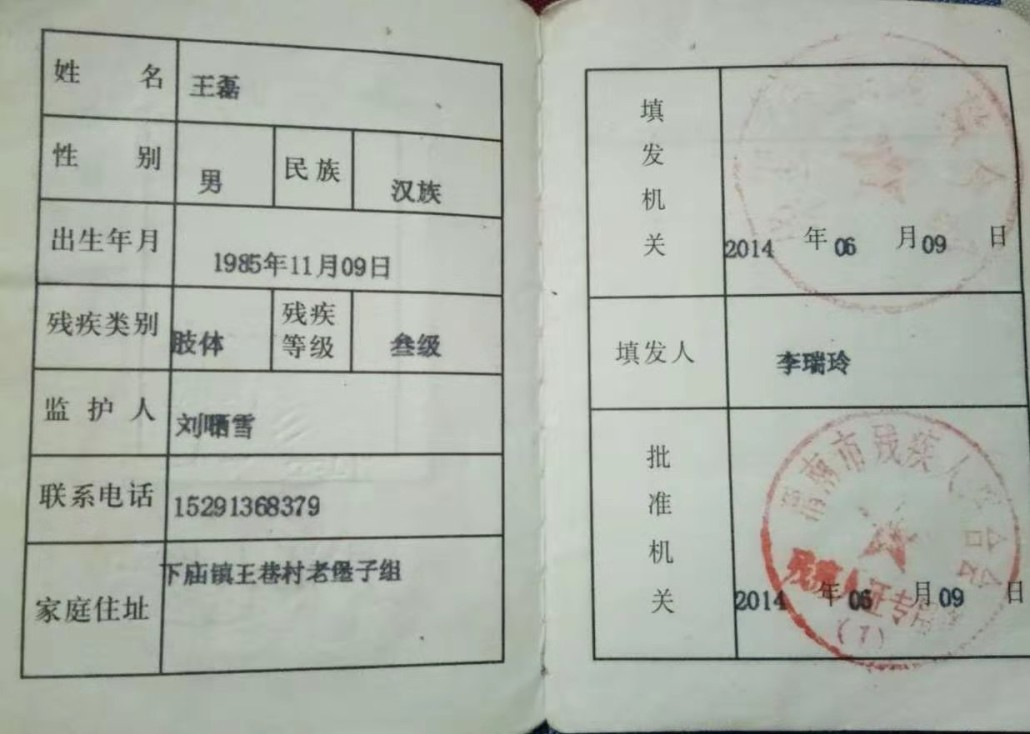 姓名 王磊
性别 男 民族 汉族
出生年月 1985年11月09日
残疾类别 肢体 残疾等级 叁级
监护人 刘晒雪
联系电话 15291368379
家庭住址 下庙镇王巷村老堡子组
填发机关 2014年06月09日
填发人 李瑞玲
批准机关 2014年06月09日
渭南市残疾人联合会
残疾人证专用章
(7)